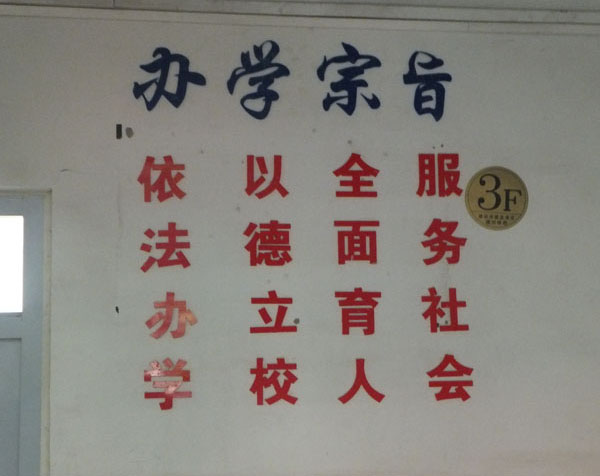 办学宗旨
依法办学
以德立校
全面育人
服务社会
3F